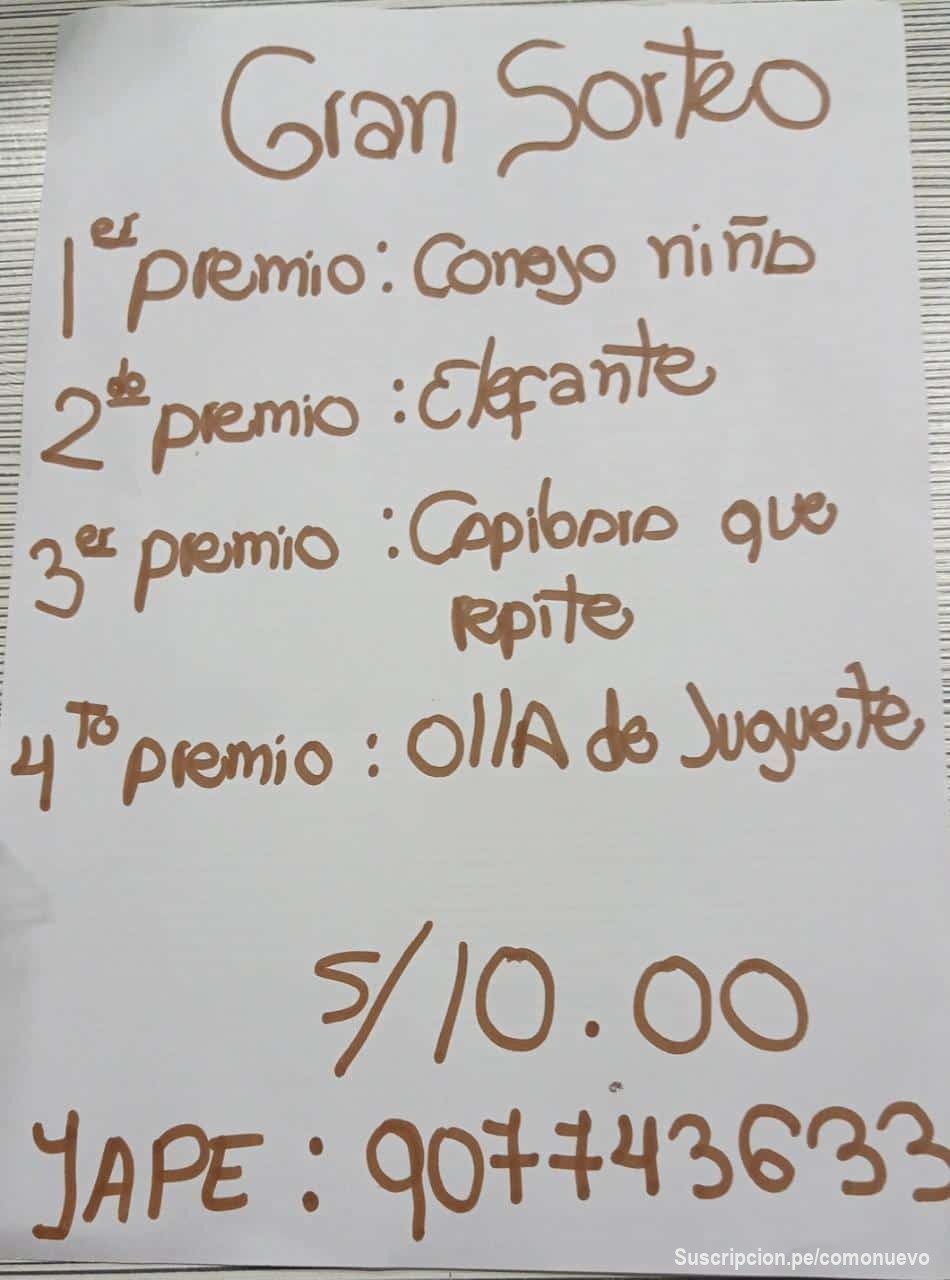 Gran Sorteo
1er premio: Conejo niño
2do premio: Elefante
3er premio: Capibara que
repite
4To premio: OllA de Juguete
S/10.00
YAPE: 907743633
Suscripcion.pe/comonuevo